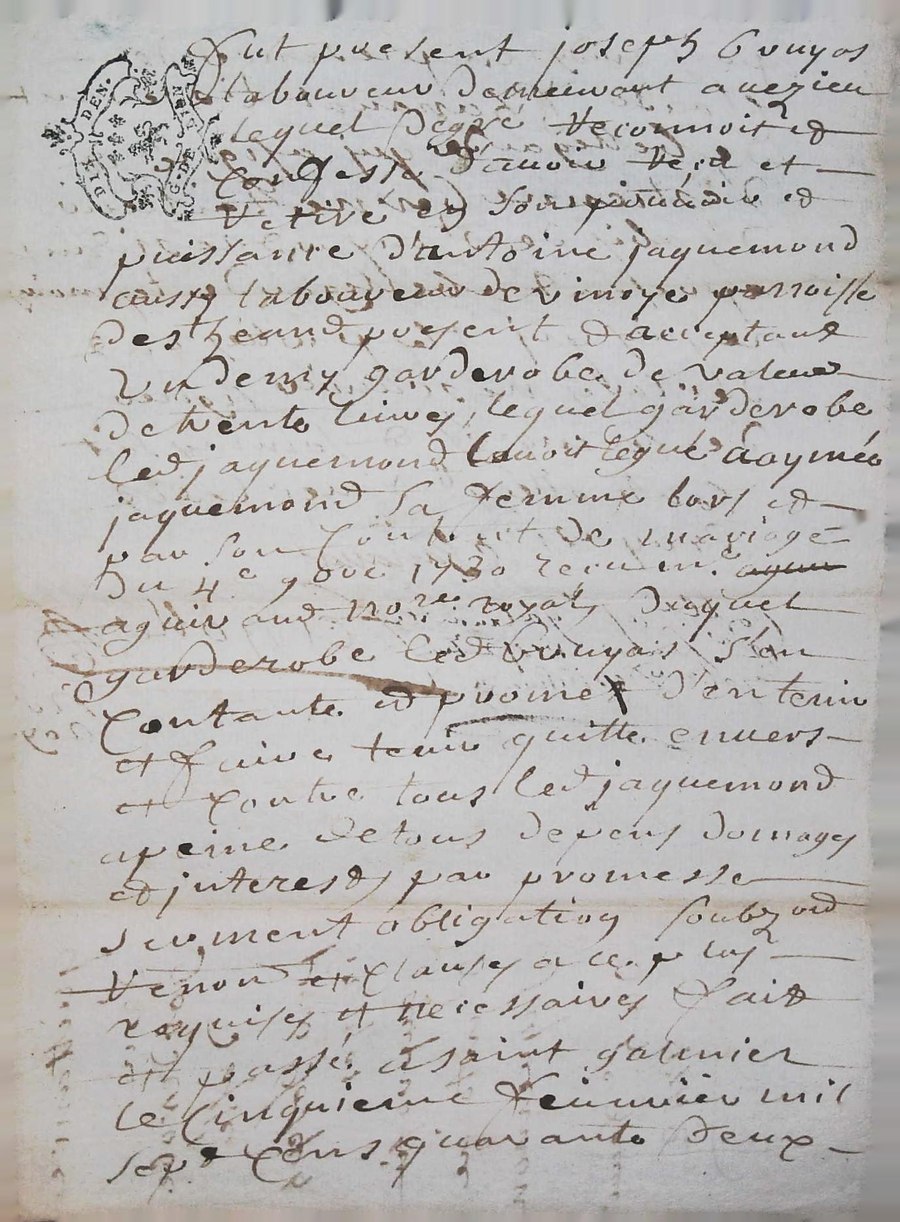 DIX DEN.
G. DE
fut present joseph Gruyas
laboureur demeurant a vezieu
lequel degré reconnoit et
confesse d'avoir reçu et
retiré en son pouvoir et
puissance d'antoine jaquemond
laboureur de vinoye parroisse
dest heand present et acceptant
un demy garderobe de valeur
de trente livres, lequel garderobe
led jaquemond avoit legué a aymée
jaquemond sa femme lors et
par son contract de mariage
du 4e 9bre 1730 receu me
aguirand nore royal duquel
garderobe led Gruyas s'en
contante et promet d'en tenir
et faire tenir quitte envers
et contre tous led jaquemond
a peine de tous depens domages
et interests par promesse
serment obligation soubz ord
renon et clauses a ce plus
requises et necessaires fait
et passé a saint galmier
le cinquieme feuvrier mil
sept cens quarante deux